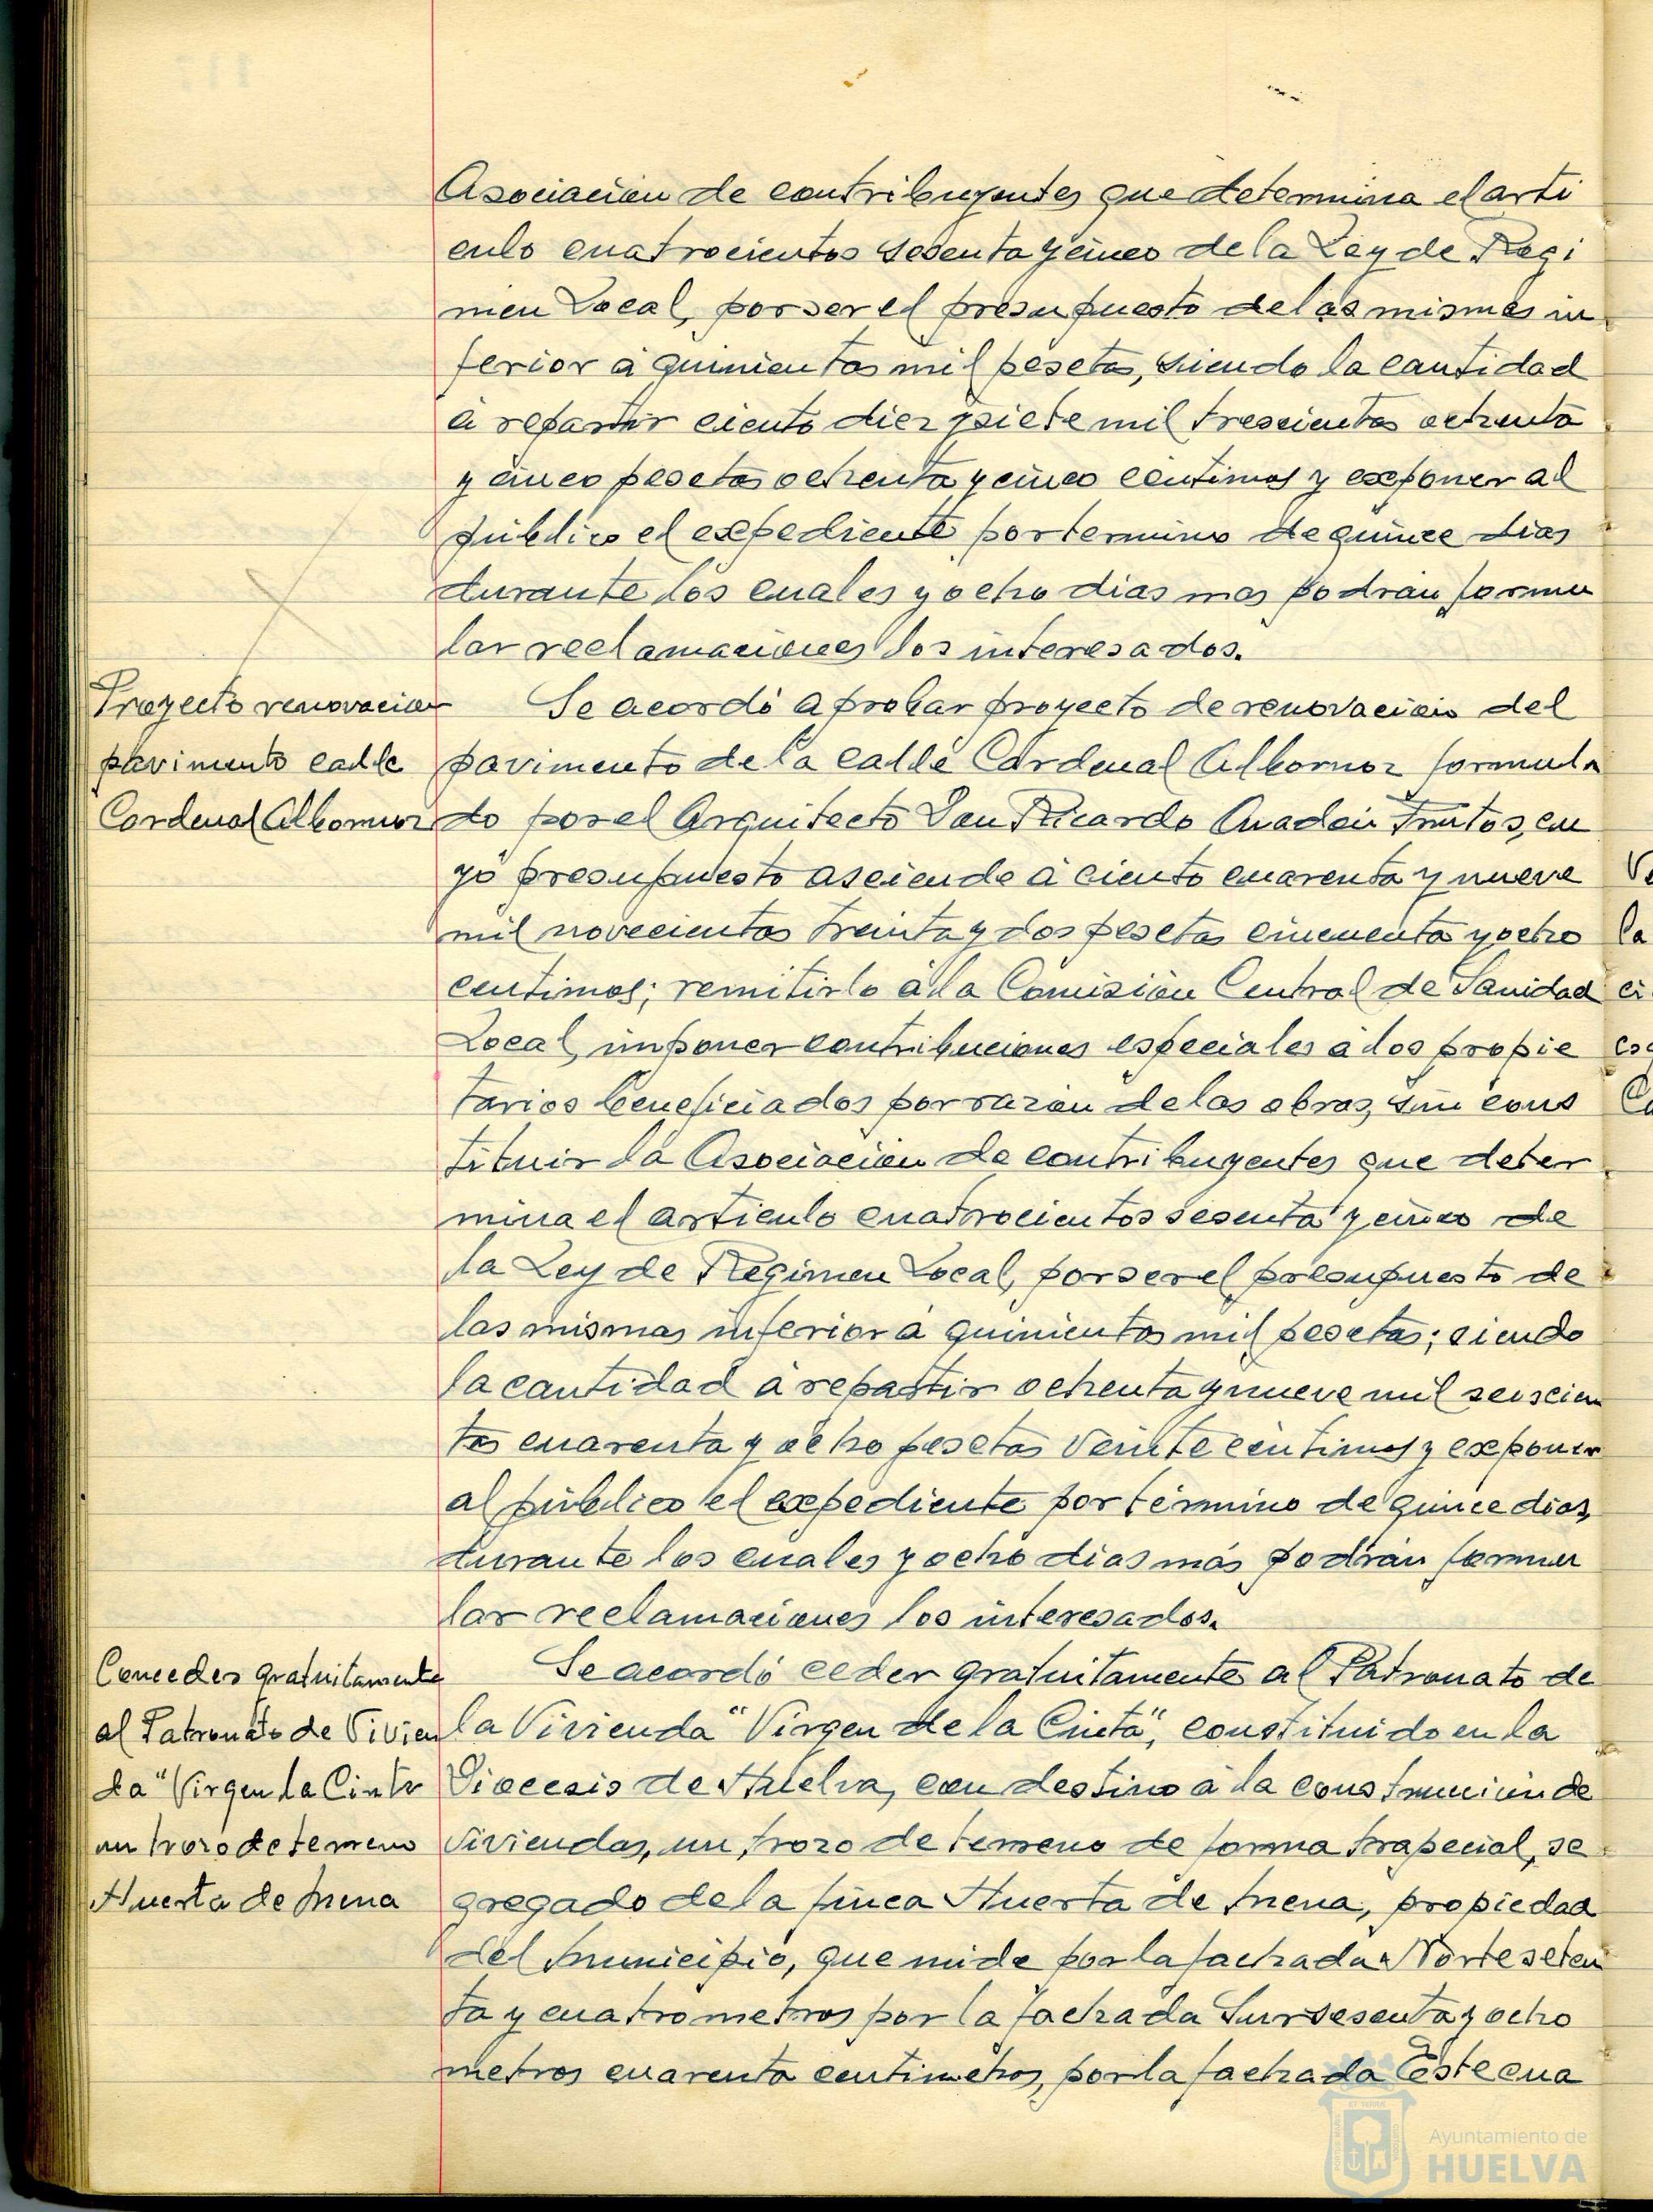 Asociacion de contribuyentes que determina el arti
culo cuatrocientos sesenta y cinco de la Ley de Regi
men Local, por ser el presupuesto de las mismas in
ferior á quinientas mil pesetas, siendo la cantidad
á repartir ciento diez y siete mil trescientas ochenta
y cinco pesetas ochenta y cinco centimos y exponer al
público el expediente por termino de quince dias
durante los cuales y ocho dias mas podrán formu
lar reclamaciones los interesados.
Proyecto renovacion
pavimento calle
Cardenal Albornoz
Se acordó aprobar proyecto de renovación del
pavimento de la calle Cardenal Albornoz formula
do por el Arquitecto Don Ricardo Anadón Frutos, cu
yo presupuesto asciende á ciento cuarenta y nueve
mil novecientas treinta y dos pesetas cincuenta y ocho
centimos; remitirlo á la Comisión Central de Sanidad
Local, imponer contribuciones especiales á los propie
tarios beneficiados por razón de las obras, sin cons
tituir la Asociacion de contribuyentes que deter
mina el articulo cuatrocientos sesenta y cinco de
la Ley de Regimen Local, por ser el presupuesto de
las mismas inferior á quinientas mil pesetas; siendo
la cantidad á repartir ochenta y nueve mil seiscien
tas cuarenta y ocho pesetas veinte centimos y exponer
al público el expediente por término de quince dias,
durante los cuales y ocho dias más podrán formu
lar reclamaciones los interesados.
Conceder gratuitamente
al Patronato de Vivien
da "Virgen la Cinta
un trozo de terreno
Huerta de Mena
Se acordó ceder gratuitamente al Patronato de
la Vivienda "Virgen de la Cinta", constituido en la
Diocesis de Huelva, con destino á la construcción de
viviendas, un trozo de terreno de forma trapecial, se
gregado de la finca Huerta de Mena, propiedad
del Municipio, que mide por la fachada Norte seten
ta y cuatro metros por la fachada Sur sesenta y ocho
metros cuarenta centimetros, por la fachada Este cua
Ayuntamiento de
HUELVA